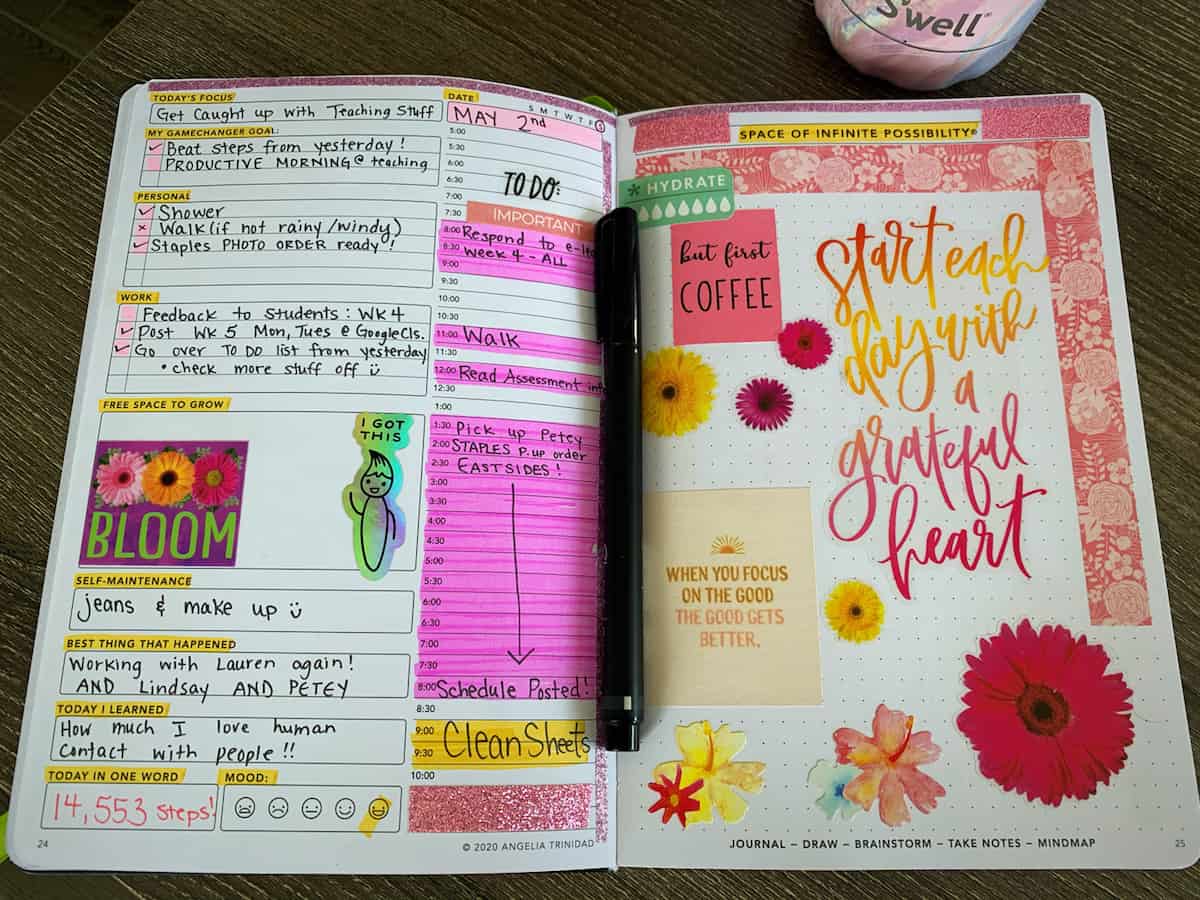 S'well
TODAY'S FOCUS
Get Caught up with Teaching Stuff
MY GAMECHANGER GOAL:
Beat steps from yesterday!
PRODUCTIVE MORNING @ teaching
PERSONAL
Shower
Walk (if not rainy/windy)
Staples PHOTO ORDER ready!
WORK
Feedback to Students: WK 4
Post WK 5 Mon, Tues @ GoogleCls.
Go over TO DO list from yesterday
• check more stuff off
FREE SPACE TO GROW
BLOOM
I GOT
THIS
SELF-MAINTENANCE
jeans & make up
BEST THING THAT HAPPENED
Working with Lauren again!
AND Lindsay AND PETEY
TODAY I LEARNED
How much I love human
Contact with people!!
TODAY IN ONE WORD
14,553 Steps!
MOOD:
24
DATE
S M T W T F S
MAY 2nd
5:00
5:30
6:00
6:30
TO DO:
7:00
7:30
IMPORTANT
8:00 Respond to
8:30 Week 4 - ALL
9:00
9:30
10:00
10:30
11:00 Walk
11:30
12:00 Read Assessment
12:30
1:00
1:30 Pick up Petey
2:00 STAPLES P.up order
2:30 EASTSIDES!
3:00
3:30
4:00
4:30
5:00
5:30
6:00
6:30
7:00
7:30
8:00 Schedule Posted!
8:30
9:00 Clean Sheets
9:30
10:00
© 2020 ANGELIA TRINIDAD
SPACE OF INFINITE POSSIBILITY®
* HYDRATE
but first
COFFEE
Start each
day with
a
grateful
heart
WHEN YOU FOCUS
ON THE GOOD
THE GOOD GETS
BETTER.
JOURNAL – DRAW – BRAINSTORM – TAKE NOTES – MINDMAP
25